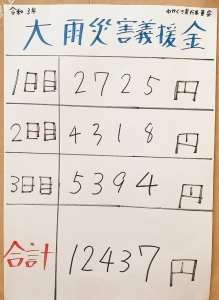 令和3年
大雨災害義援金
1日目 2725円
2日目 4318円
3日目 5394円
合計 12437円